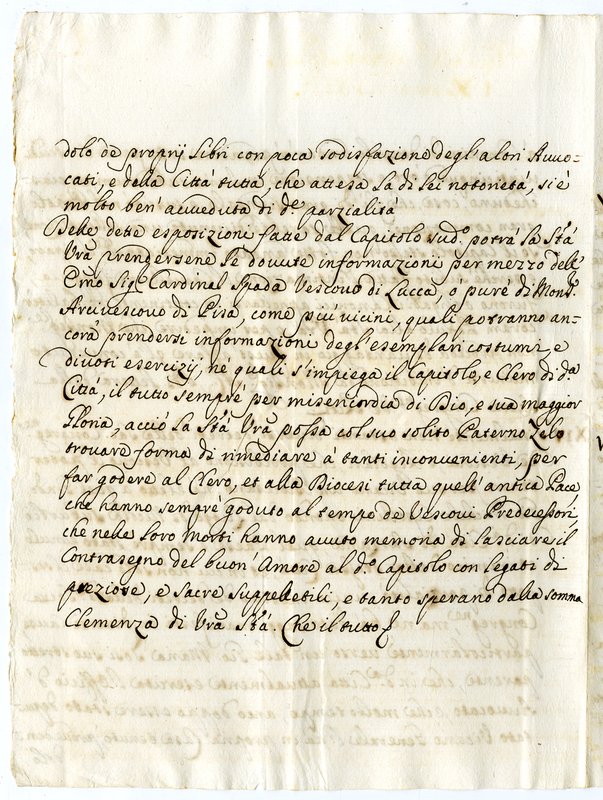 dolo de proprij Libri con poca sodisfazione degl'altri Avvo=
cati, e della Città tutta, che attesa la di lei notorietà, si è
molto ben' avveduta di d.ª parzialità
Delle dette esposizioni fatte dal Capitolo sud.º potrà la S.tà
Vrã prendersene le dovute informazioni per mezzo dell'
Emo Sig.r Cardinal Spada Vescovo di Lucca, ò pure di Mons.r
Arcivescovo di Pisa, come più vicini, quali potranno an=
corà prendersi informazioni degl'esemplari costumi, e
divoti esercizij, ne quali s'impiega il Capitolo, e Clero di d.ª
Città, il tutto sempre per misericordia di Dio, e sua maggior
Gloria, acciò la S.tà Vrã possa col suo solito Paterno Zelo
trovare forma di rimediare à tanti inconvenienti, per
far godere al Clero, et alla Diocesi tutta quell'antica Pace
che hanno sempre goduto al tempo de Vescovi Predecessori,
che nelle loro morti hanno avuto memoria di lasciare il
Contrasegno del buon' Amore al d.º Capitolo con legati di
preziose, e Sacre Suppellettili, e tanto sperano dalla somma
Clemenza di Vrã S.tà. Che il tutto